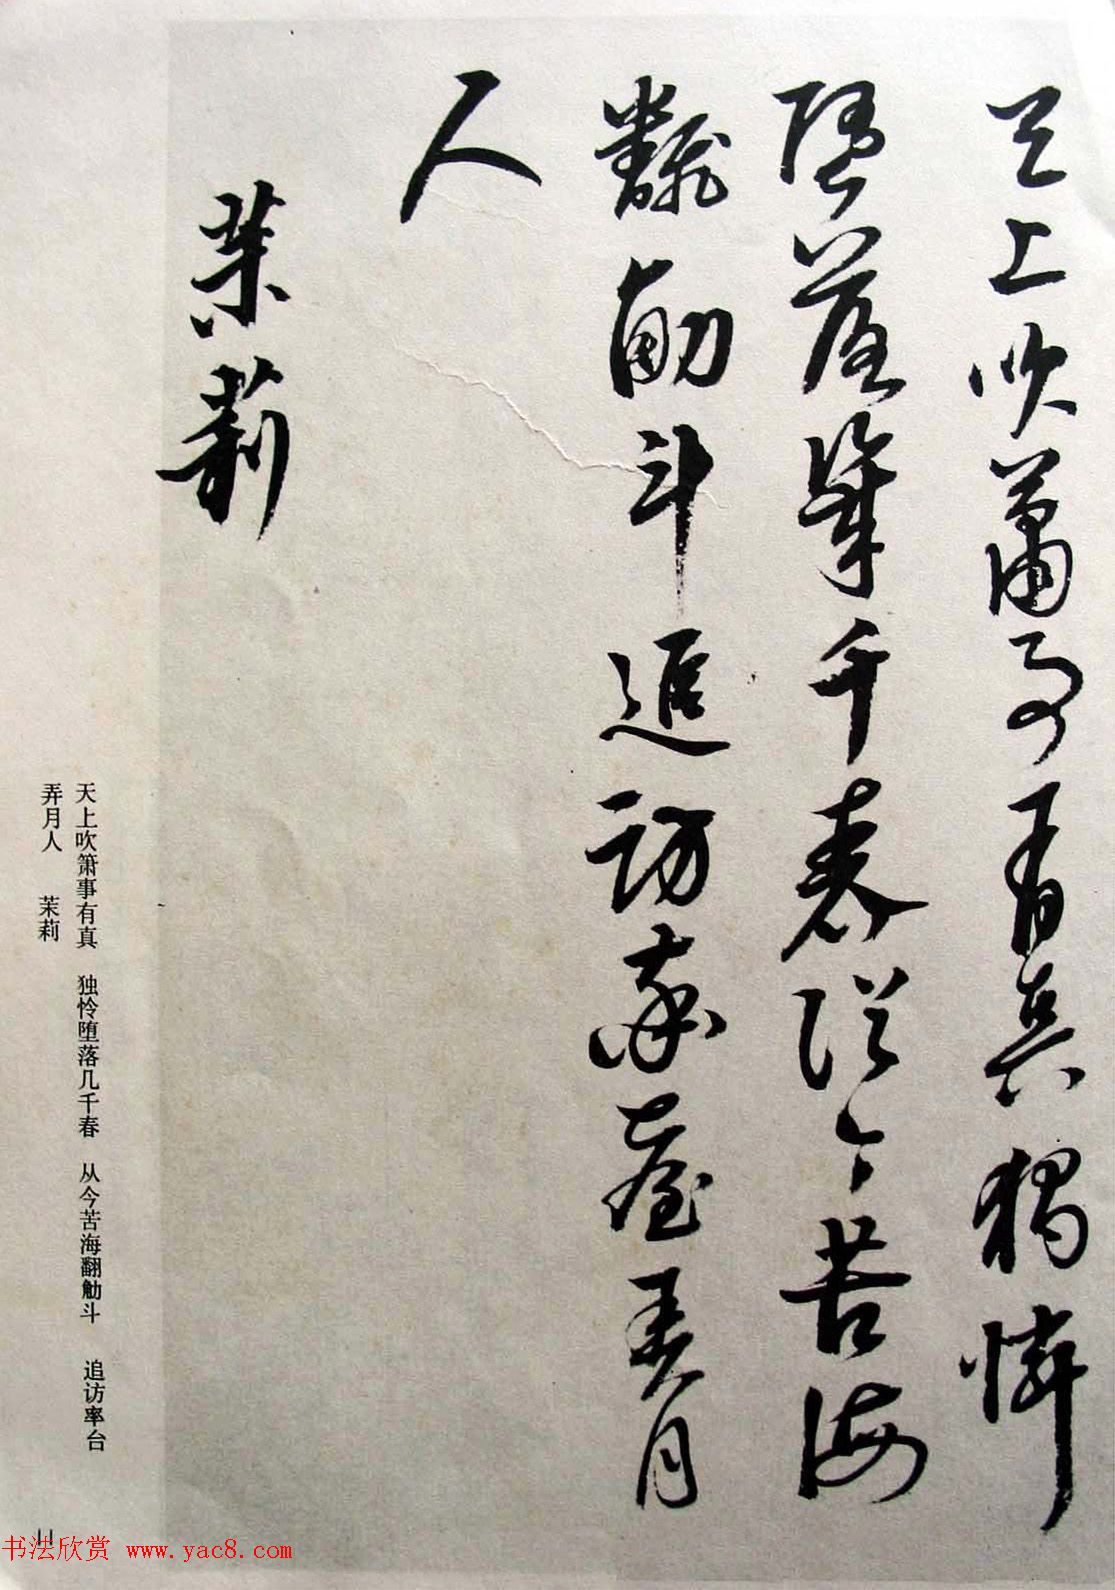 天上吹簫事有真獨憐
墮落幾千春從今苦海
翻觔斗追訪率臺弄月
人
茉莉
天上吹箫事有真 独怜堕落几千春 从今苦海翻觔斗 追访率台
弄月人 茉莉
11
书法欣赏 www.yac8.com